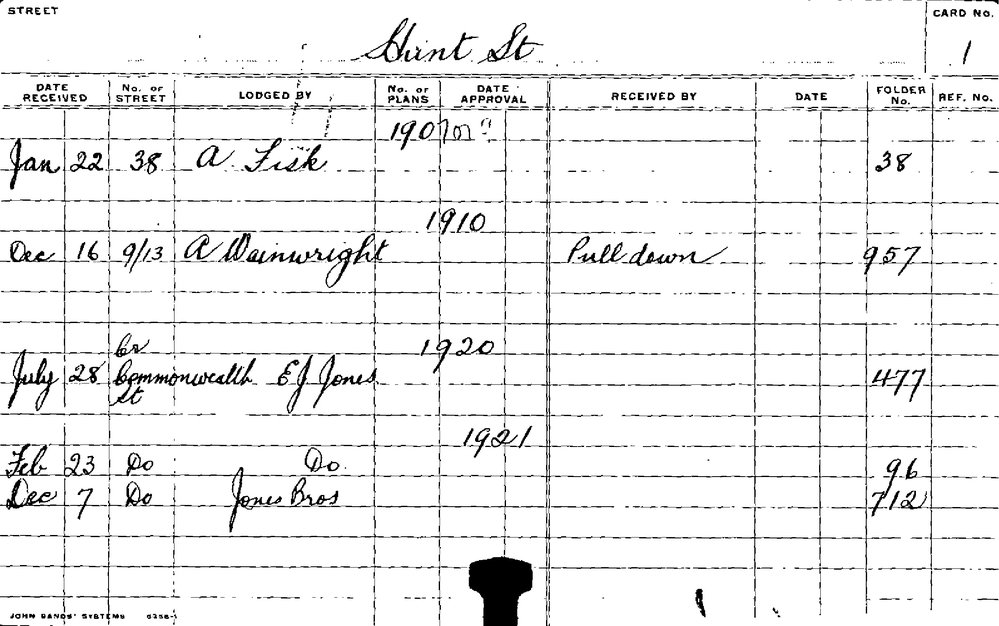 STREET
CARD No.
Hunt St
1
DATE RECEIVED No. OF STREET LODGED BY No. OF PLANS DATE APPROVAL RECEIVED BY DATE FOLDER No. REF. No.
1907
Jan 22 38 A Fisk 38
1910
Dec 16 9/13 A Wainwright Pull down 957
1920
July 28 Cr Commonwealth St E J Jones 477
1921
Feb 23 Do Do. 96
Dec 7 Do Jones Bros 712
JOHN SANDS' SYSTEMS